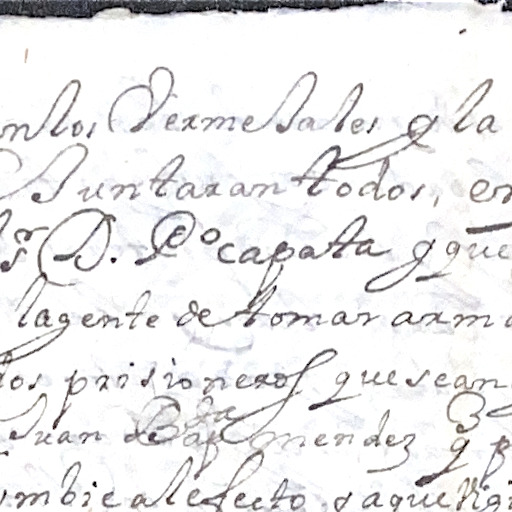 en los Vermejales q la
Juntaran todos, en
Sr D. Po capata y que
la gente de tomar arma
los prisioneros que sean
Juan de Bapta mendez q p
embie al efecto saque